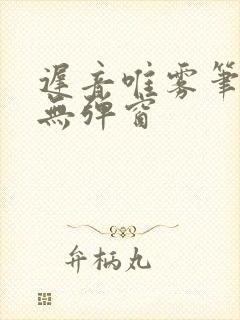 遲音唯霧筆
無彈窗
弁柄丸